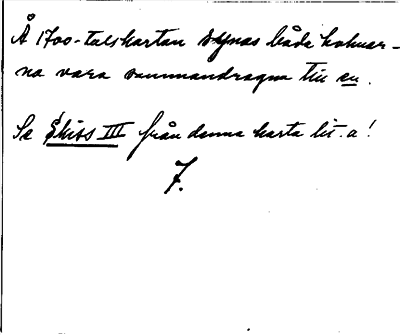 Å 1700-talskartan synas båda holmar-
na vara sammandragna till en.
Se Skiss III från denna karta lit. a!
7.